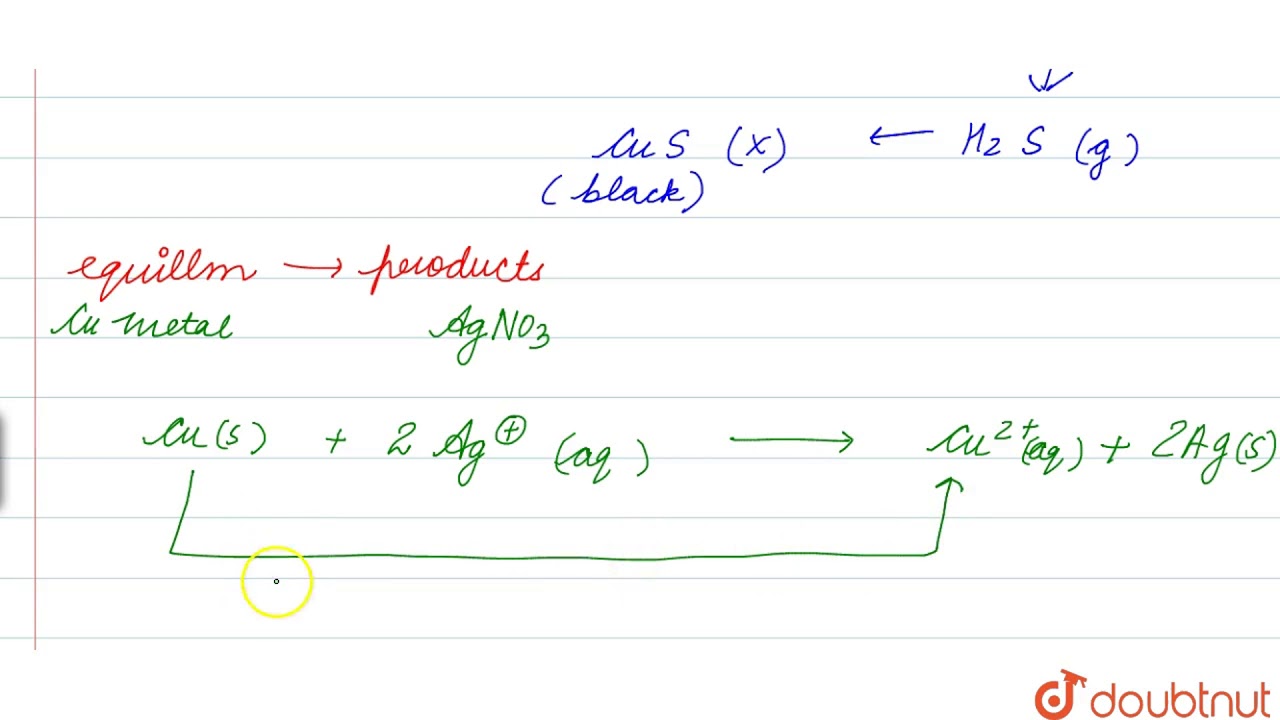 CuS (x) ← H2 S (g)
(black)
equillm → products
Cu metal AgNO3
Cu(s) + 2 Ag⊕ (aq) → Cu2+(aq) + 2Ag(s)
doubtnut